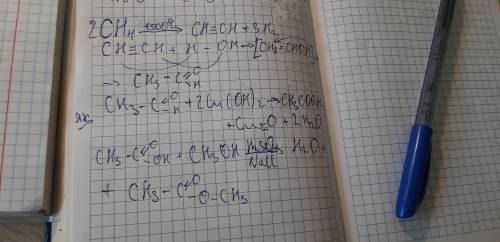 2CH₄ 1500°C → CH≡CH + 3H₂
CH≡CH + H – OH → [CH₂=CHOH]
→ CH₃ – C =O –H
CH₃ – C =O –H + 2Cu(OH)₂ → CH₃COOH
+ Cu₂O + 2H₂O
CH₃ – C =O –OH + CH₃OH → H₂O +
+ CH₃ – C =O –O – CH₃